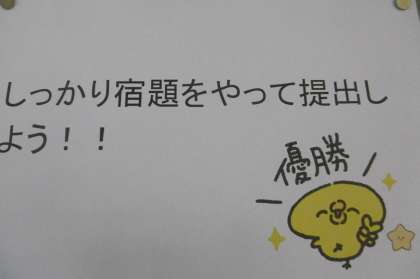 しっかり宿題をやって提出し
よう！！
優勝